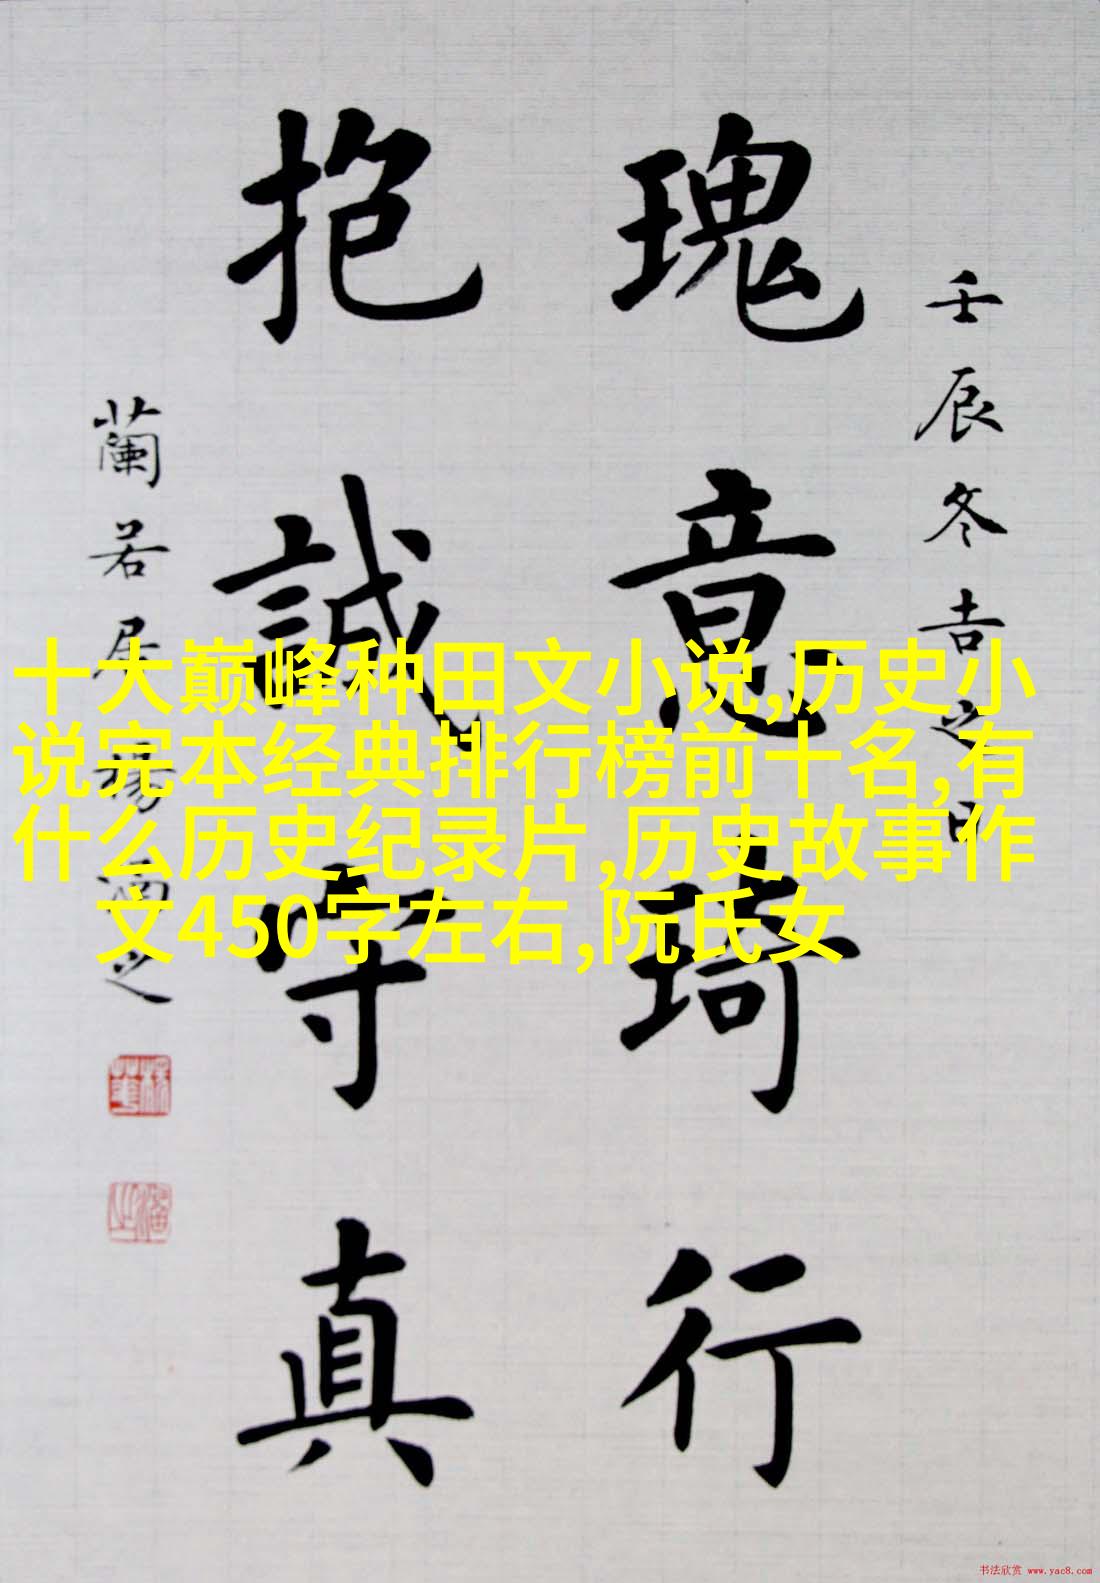 壬辰冬吉之日
瑰意琦行
抱誠守真
蘭若居楊酒之
十大巅峰种田文小说,历史小
说完本经典排行榜前十名,有
什么历史纪录片,历史故事作
文450字左右,阮氏女
书法欣赏 www.yac8.com